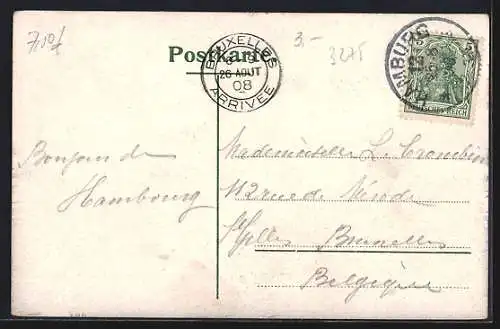 7,50f
3.-
3275
Postkarte
BRUXELLES
26 AOUT
08
ARRIVÉE
HAMBURG
5
DEUTSCHES REICH
Bonjour de
Hambourg
Mademoiselle L.
112 rue de
St Gilles Bruxelles
Belgique